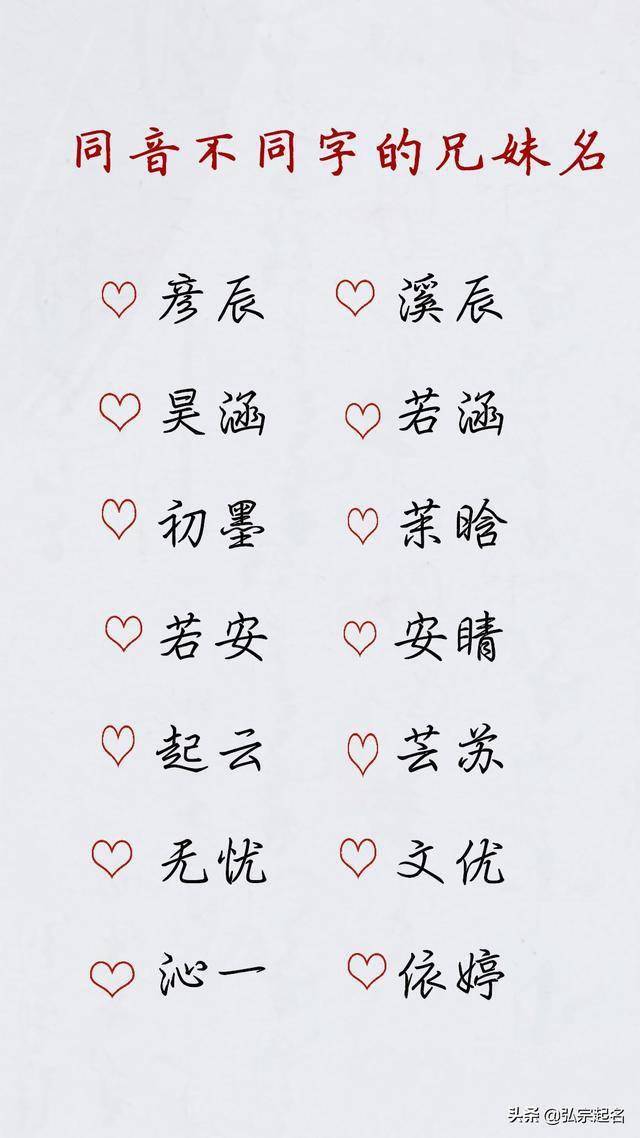 同音不同字的兄妹名
彦辰 溪辰
昊涵 若涵
初墨 茉晗
若安 安晴
起云 芸苏
无忧 文优
沁一 依婷
头条 @弘宗起名